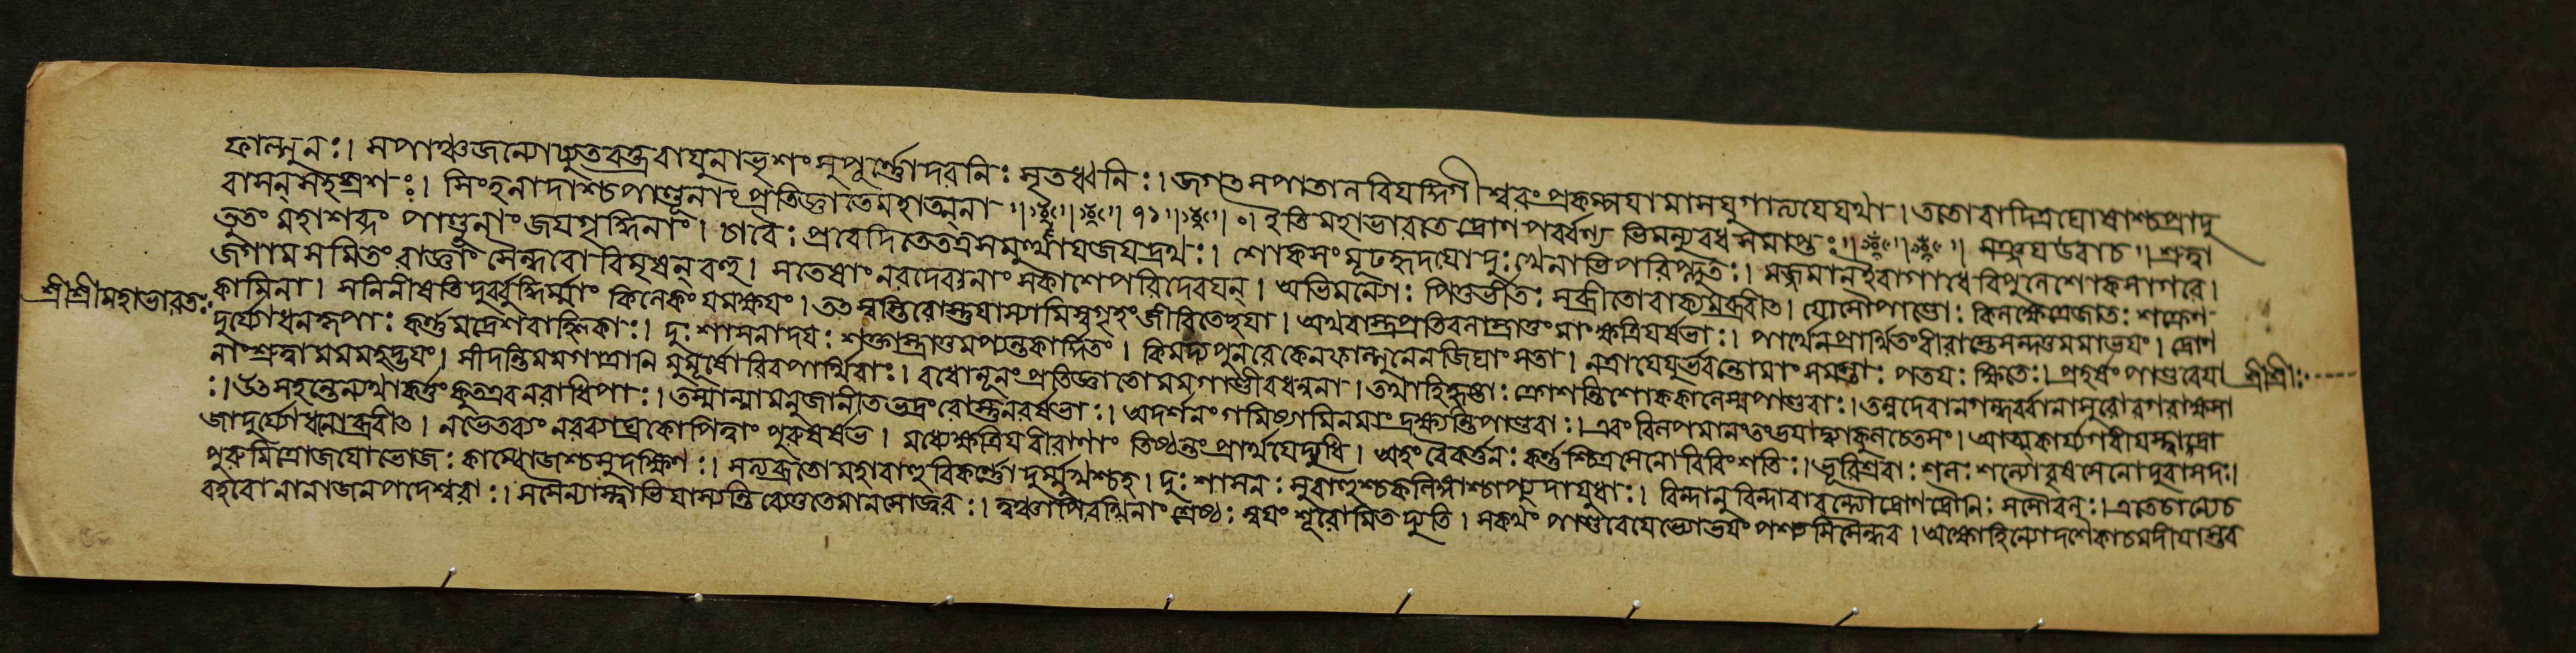 ফাল্গুনঃ। সপাঞ্চজন্যোচ্যুতবক্ত্রবায়ুনাভৃশং সুপূর্ণোদরনিঃ সৃতধ্বনিঃ। জগৎ সপাতালবিয়দ্দিগীশ্বরং প্রকম্পয়ামাসযুগাত্যয়েযথা। ততোবাদিত্রঘোষাশ্চপ্রাদু
রাসন্ সহস্রশঃ। সিংহনাদাশ্চপাণ্ডূনাং প্রতিজ্ঞাতেমহাত্মনা ॥ ৭১ ॥ ০। ইতি মহাভারতে দ্রোণ পর্ব্বণ্য ভিমন্যুবধ সমাপ্তঃ॥ সঞ্জয় উবাচ॥ শ্রুত্বা
তুতং মহাশব্দং পাণ্ডূনাং জয়গৃদ্ধিনাং। চারৈঃ প্রবেদিতেতত্রসমুত্থায়জয়দ্রথঃ। শোকসংমূঢহৃদয়োদুঃখেনাভিপরিপ্লুতঃ। মজ্জমানইবাগাধে বিপুলেশোকসাগরে।
জগাম সমিতিং রাজ্ঞাং সৈন্ধবো বিমৃষন্ বহু। সতেষাং নরদেবানাং সকাশেপরিদেবয়ন্। অভিমন্যোঃ পিতুর্ভীতঃ সব্রীতোবাক্যমব্রবীৎ। যোসৌপাণ্ডোঃ কিলক্ষেত্রেজাতঃ শক্রেণ
শ্রীশ্রীমহাভারতঃ
কামিনা। সনিনীষতি দুর্ব্বুদ্ধির্ম্মাং কিলৈকং যমক্ষয়ং। তৎ স্বস্তিবোস্তুযাস্যামিস্বগৃহং জীবিতেপ্সয়া। অথবাস্ত্রপ্রতিবলাস্ত্রাতুং মাং ক্ষত্রিয়র্ষভাঃ। পার্থেনপ্রার্থিতংবীরাস্তেসন্দত্তমমাভয়ং। দ্রোণ
দুর্য্যোধনকৃপাঃ কর্ণমদ্রেশবাহ্লিকাঃ। দুঃশাসনাদয়ঃ শক্তাস্ত্রাতুমপ্যন্তকার্দ্দিতং। কিমঙ্গ পুনরেকেনফাল্গুনেনজিঘাং সতা। নত্রায়েয়ুর্ভবন্তোমাং সমস্তাঃ পতয়ঃ ক্ষিতেঃ। প্রহর্ষং পাণ্ডবেয়া
শ্রীশ্রীঃ
নাংশ্রুত্বামমমহদ্ভয়ং। সীদন্তিমমগাত্রানি মুমূর্ষোরিবপার্থিবাঃ। বধোনূনং প্রতিজ্ঞাতোমমগাণ্ডীবধন্বনা। তথাহিহৃষ্টাঃ ক্রোশন্তিশোককালেস্মপাণ্ডবাঃ। তন্নদেবানগন্ধর্ব্বানাসুরোরগরাক্ষসা
ঃ। উৎসহন্তেন্যথাকর্ত্তুং কুতএবনরাধিপাঃ। তস্মান্মামনুজানীতভদ্রং বোস্তুনরর্ষভাঃ। অদর্শনং গমিষ্যামিনমাং দ্রক্ষ্যন্তিপাণ্ডবাঃ। এবং বিলপমানংতংভয়াদ্ব্যাকুলচেতসং। আত্মকার্য্যগরীয়স্ত্বাদ্রা
জাদুর্য্যোধনোব্রবীৎ। নভেতব্যং নরব্যাঘ্রকোপিত্বাং পুরুষর্ষভ। মধ্যেক্ষত্রিয়বীরাণাং তিষ্ঠন্তং প্রার্থয়েদ্যুধি। অহং বৈকর্ত্তনঃ কর্ণশ্চিত্রসেনো বিবিংশতিঃ। ভূরিশ্রবাঃ শলঃ শল্যোবৃষসেনোদুরাসদঃ।
পুরুমিত্রোজয়োভোজঃ কাম্বোজশ্চসুদক্ষিণঃ। সত্যব্রতোমহাবাহুবিকর্ণোদুর্ম্মুখশ্চহ। দুঃশাসনঃ সুবাহুশ্চকলিঙ্গশ্চাপ্যুদায়ুধাঃ। বিন্দানুবিন্দাবাবন্ত্যৌদ্রোণদ্রৌণিঃ সসৌবলঃ। এতেচান্যেচ
বহবোনানাজনপদেশ্বরাঃ। সসৈন্যাস্ত্বাভিযাস্যন্তিব্যেতুতেমানসোজ্বরঃ। ত্বঞ্চাপিরথিনাং শ্রেষ্ঠঃ স্বয়ং শূরোমিতদ্যুতি। সকথং পাণ্ডবেয়েভ্যোভয়ং পশ্যসিসৈন্ধব। অক্ষৌহিণ্যোদশৈকাচমদীয়াস্তব